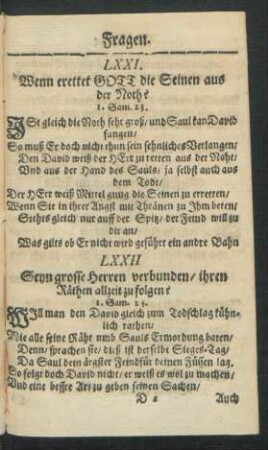 Fragen.
LXXI.
Wenn erettet GOTT die Seinen aus
der Noth?
1. Sam. 23.
ISt gleich die Noth sehr groß/ und Saul kan David
fangen/
So muß Er doch nicht thun sein sehnliches Verlangen/
Den David weiß der HErr zu retten aus der Noht/
Und aus der Hand des Sauls/ ja selbst auch aus
dem Tode/
Der HErr weiß Mittel gnug die Seinen zu erretten/
Wenn Sie in ihrer Angst mit Thränen zu Ihm beten/
Stehts gleich nur auff der Spitz/ der Feind will zu
dir an/
Was gilts ob Er nicht wird geführt ein andre Bahn
LXXII
Seyn grosse Herren verbunden/ ihren
Räthen allzeit zu folgen?
1. Sam. 24.
WIll man den David gleich zum Todschlag kühn-
lich rathen/
Wie alle seine Räht umb Sauls Ermordung baten/
Denn/ sprachen sie/ diß ist derselbe Sieges-Tag/
Da Saul dein ärgster Feind für deinen Füssen lag.
So folgt doch David nicht/ er weiß es wol zu machen/
Und eine bessre Art zu geben seinen Sachen/
D 2 Auch